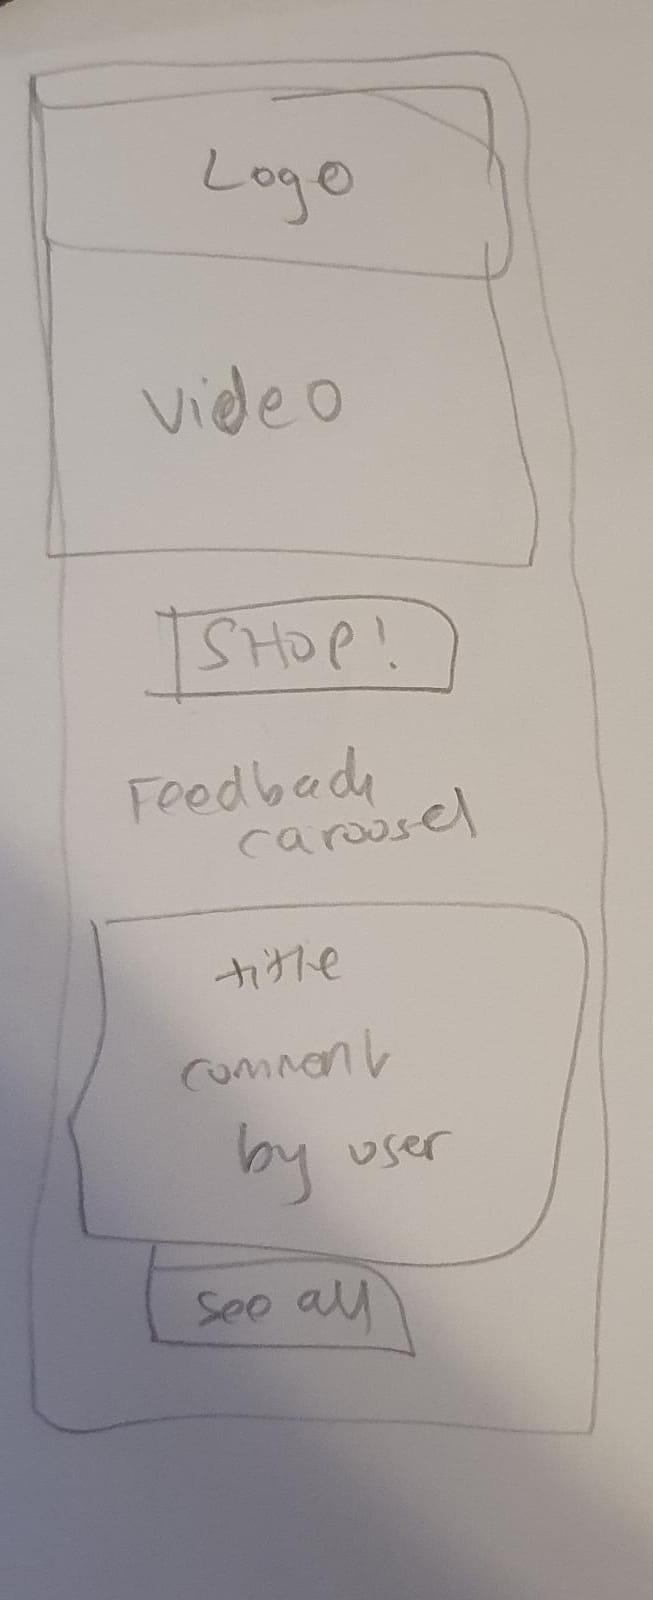 Logo
video
SHOP!
Feedback
carousel
title
comment
by user
see all